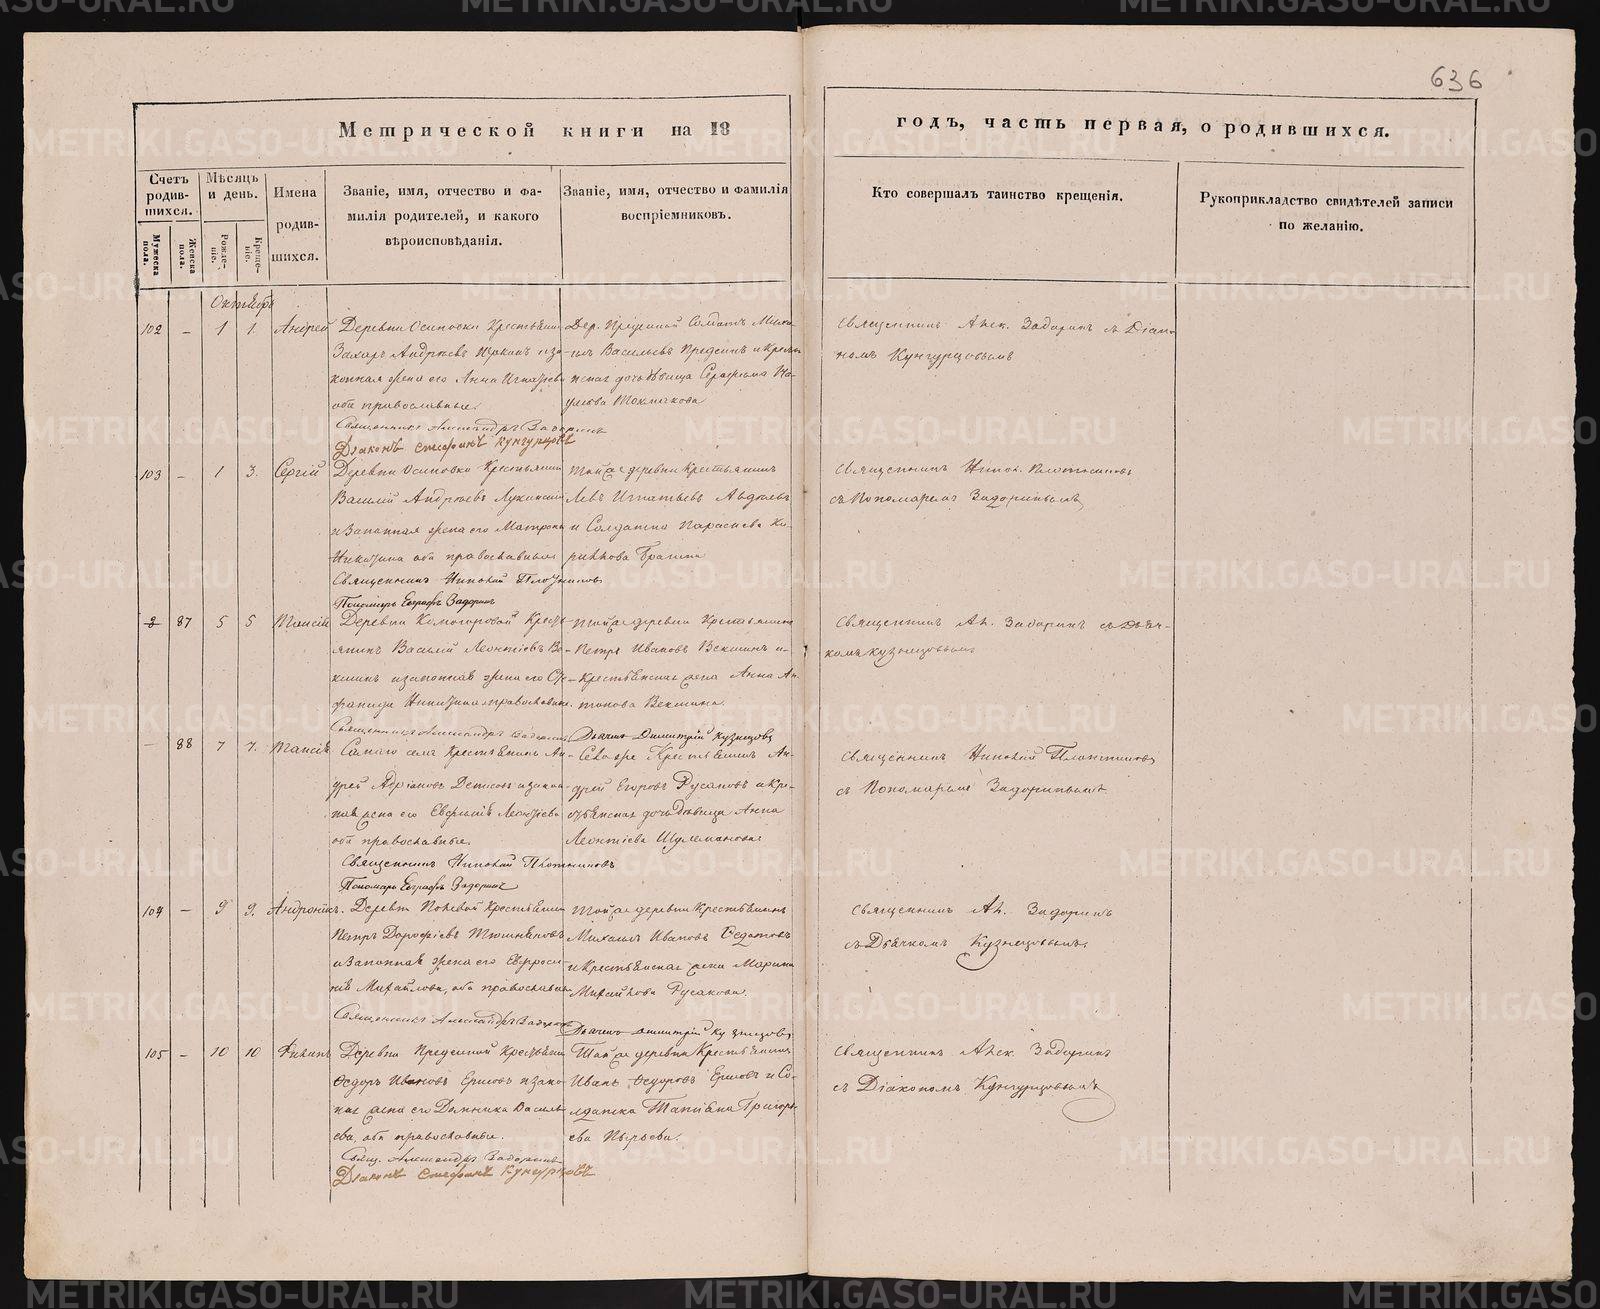 636
Метрической книги на 18
годъ, часть первая, о родившихся.
Счетъ родив-шихся.
Мѣсяцъ и день.
Имена родив-шихся.
Званіе, имя, отчество и фа-
милія родителей, и какого
вѣроисповѣданія.
Званіе, имя, отчество и фамилія
воспріемниковъ.
Кто совершалъ таинство крещенія.
Рукоприкладство свидѣтелей записи
по желанію.
Мужеска пола.
Женска пола.
Рожде-ніе.
Креще-ніе.
Октябрь
102 – 1 1. Андрей
Деревни Осиповки Крестьянин
Захаръ Андреевъ и за-
конная жена его Анна
оба православные.
Священникъ Александръ Задоринъ
Діаконъ Стефанъ Кунгурцовъ
Дер. Солдатъ Миха-
илъ Васильевъ и Кресть-
дочь дѣвица
Священникъ Алек. Задоринъ съ Діако-
номъ Кунгурцовымъ
103 – 1 3. Сергій
Деревни Осиповки Крестьянин
Василій Андреевъ
и Законная жена его Матрона
Никитина оба православные
Священникъ Николай Плотниковъ
Пономарь Евграфъ Задоринъ
Той же деревни Крестьянинъ
Левъ Игнатьевъ
и Солдатка
Священникъ Никол. Плотниковъ
съ Пономаремъ Задоринымъ
87 5 5 Таисія
Деревни Комогоровой Кресть-
янинъ Василій Леонтіевъ Ве-
кшинъ и законная жена его
Никитина православные.
Священникъ Александръ Задоринъ
Той же деревни Крестьянинъ
Петръ Ивановъ Векшинъ и
Крестьянская жена Анна Ан-
тонова Векшина.
Дьячекъ Димитрій Кузнецовъ
Священникъ Ал. Задоринъ съ Дьяч-
комъ Кузнецовымъ
– 88 7 7. Таисія
Самаго села Крестьянинъ Ан-
дрей Адріановъ Денисовъ и закон-
ная жена его Евфимія Леонтіева
оба православные.
Священникъ Николай Плотниковъ
Пономарь Евграфъ Задоринъ
Села же Крестьянинъ Ан-
дрей Егоровъ Русановъ и Кре-
стьянская дочь Дѣвица Анна
Леонтіева
Священникъ Николай Плотниковъ
съ Пономаремъ Задоринымъ
104 – 9 9. Андроникъ.
Деревни Крестьянин
Петръ Дорофеевъ
и Законная жена его Евфроси-
нія Михайлова, оба православные
Священникъ Александръ Задоринъ
Той же деревни Крестьянинъ
Михаилъ Ивановъ
и Крестьянская жена Марина
Михайлова Русакова.
Дьячекъ Димитрій Кузнецовъ
Священникъ Ал. Задоринъ
съ Дьячкомъ Кузнецовымъ.
105 – 10 10
Деревни Крестьянин
Ѳедоръ Ивановъ Ершовъ и зако-
ная жена его Домника Василь-
ева, оба православные.
Свящ. Александръ Задоринъ
Діаконъ Стефанъ Кунгурцовъ
Той же деревни Крестьянинъ
Иванъ Ѳедоровъ Ершовъ и Со-
лдатка Татіана Григорь-
ева
Священникъ Алек. Задоринъ
съ Діакономъ Кунгурцовымъ
METRIKI.GASO-URAL.RU